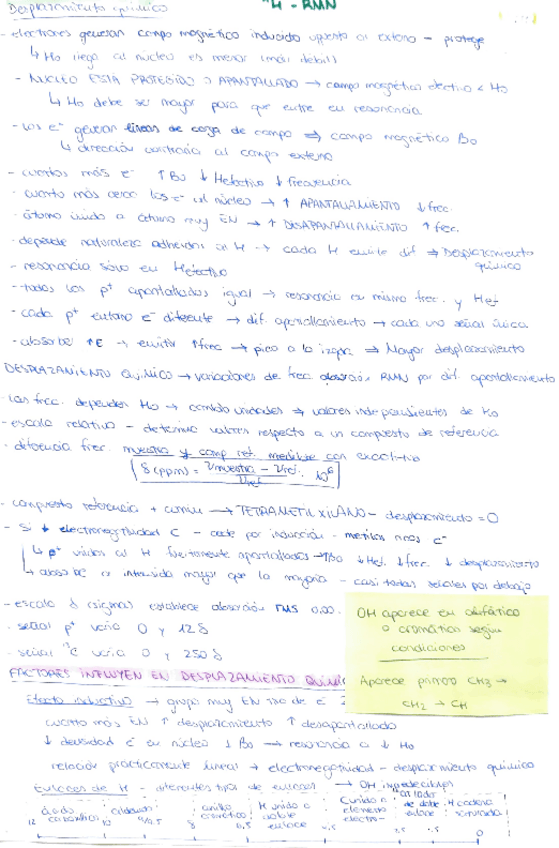 Desplazamiento químico
4 - RMN
- electrones generan campo magnético inducido opuesto al externo - protege
↳ Ho llega al núcleo es menor (más débil)
- NÚCLEO ESTÁ PROTEGIDO O APANTALLADO → campo magnético efectivo < Ho
↳ Ho debe ser mayor para que entre en resonancia
- Los e⁻ generan líneas de carga de campo ⇒ campo magnético Bo
↳ dirección contraria al campo externo
- cuantos más e⁻ ↑ Bo ↓ Hefectivo ↓ frecuencia
- cuanto más cerca los e⁻ al núcleo → ↑ APANTALLAMIENTO ↓ frec.
- átomo unido a átomo muy EN → ↑ DESAPANTALLAMIENTO ↑ frec.
- depende naturaleza adheridos al H → cada H emite dif → Desplazamiento químico
- resonancia sólo en Hefectivo
- todos los p⁺ apantallados igual → resonancia en misma frec. y Hef
- cada p⁺ entorno e⁻ diferente → dif. apantallamiento → cada uno señal única.
- absorbe ↑E → emitir ↑frec → pico a la izqna ⇒ Mayor desplazamiento
DESPLAZAMIENTO QUÍMICO → variaciones de frec absorción RMN por dif. apantallamiento
- Las frec. dependen Ho → cambio unidades ⇒ valores independientes de Ho
- escala relativa - determina valores respecto a un compuesto de referencia
- diferencia frec. muestra y comp ref. medible con exactitud
δ (ppm) = Vmuestra - Vref. / Vref · 10⁶
- compuesto referencia + común → TETRAMETILXILANO - desplazamiento = 0
- Si ↓ electronegatividad C - cede por inducción - metilos ricos e⁻
↳ p⁺ unidos al H fuertemente apantallados → ↑Bo ↓Hef. ↓frec. ↓ desplazamiento
→ absorbe a intensidad mayor que la mayoría - casi todas señales por debajo
- escala δ (sigmas) establece absorción TMS 0,00.
- señal p⁺ varía 0 y 12 δ
- señal ¹³C varía 0 y 250 δ
OH aparece en alifático
o aromático según
condiciones
Aparece primero CH₃ →
CH₂ → CH
FACTORES INFLUYEN EN DESPLAZAMIENTO QUÍMICO
Efecto inductivo → grupo muy EN tira de e⁻
cuanto más EN ↑ desplazamiento ↑ desapantallado
↓ densidad e⁻ en núcleo ↓ Bo → resonancia a ↓ Ho
relación prácticamente lineal → electronegatividad - desplazamiento químico
Enlaces de H - diferentes tipos de enlaces → OH impredecibles
ácido carboxílico
aldehído
anillo aromático
H unido a doble enlace
C unido a elemento electro-
al lado de doble enlace
H cadena saturada
12 10 8 6,5 4,5 2,5 1,5 0